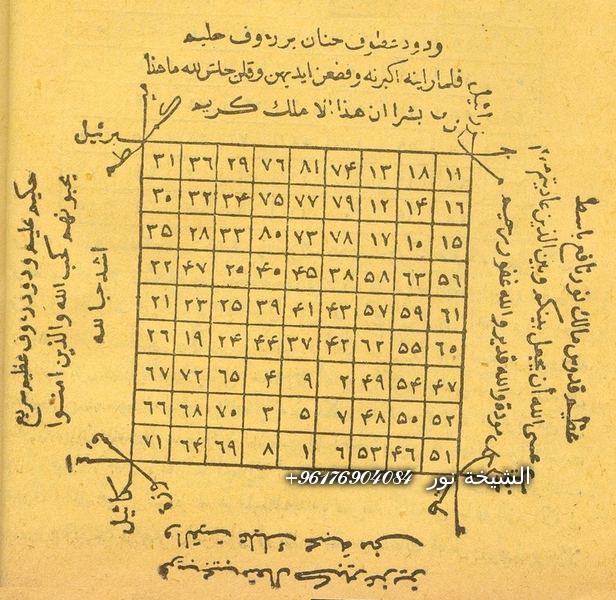 ودود عطوف حنان بر رءوف حليم
فلما راينه اكبرنه وقطعن ايديهن وقلن حاش لله ما هذا
بشرا ان هذا الا ملك كريم
٣١ ٣٦ ٢٩ ٧٦ ٨١ ٧٤ ١٣ ١٨ ١١
٣٠ ٣٢ ٣٤ ٧٥ ٧٧ ٧٩ ١٢ ١٤ ١٦
٣٥ ٢٨ ٣٣ ٨٠ ٧٣ ٧٨ ١٧ ١٠ ١٥
٢٢ ٤٧ ٢٥ ٤٠ ٤٥ ٣٨ ٥٨ ٦٣ ٥٦
٢١ ٢٣ ٢٥ ٣٩ ٤١ ٤٣ ٥٧ ٥٩ ٦١
٢٦ ١٩ ٢٤ ٤٤ ٣٧ ٤٢ ٦٢ ٥٥ ٦٠
٦٧ ٧٢ ٦٥ ٤ ٩ ٢ ٤٩ ٥٤ ٤٧
٦٦ ٦٨ ٧٠ ٣ ٥ ٧ ٤٨ ٥٠ ٥٢
٧١ ٦٤ ٦٩ ٨ ١ ٦ ٥٣ ٤٦ ٥١
عسى الله أن يجعل بينكم وبين الذين عاديتم منهم
مودة والله قدير والله غفور رحيم
عظيم قدوس مالك نور نافع باسط
حكيم عليم ودود رءوف عظيم سريع
يحبونهم كحب الله والذين امنوا
اشد حبا لله
والقيت عليك محبة مني
الشيخة نور 96176904084+